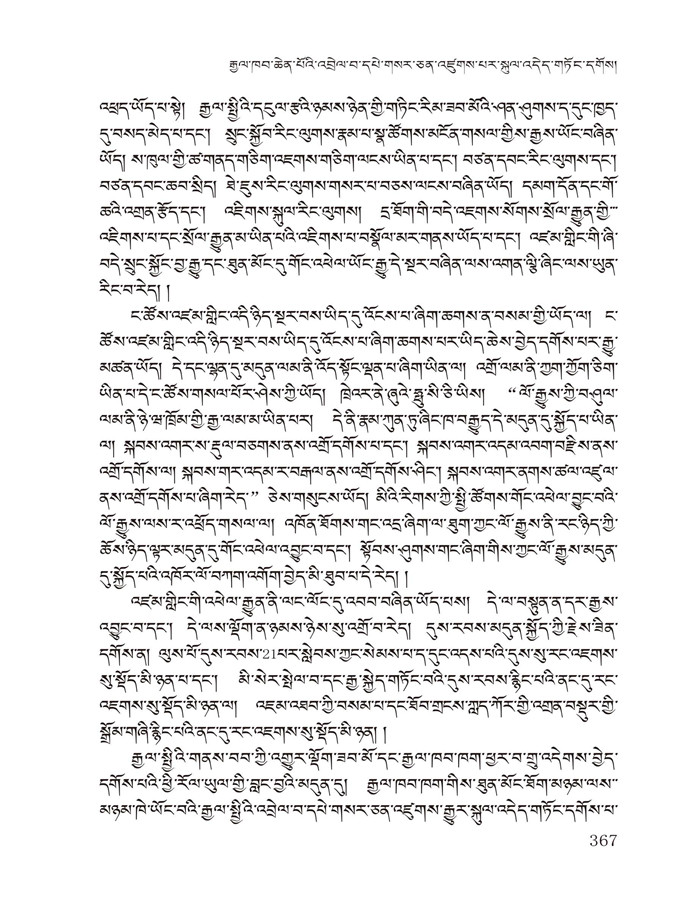 རྒྱལ་ཁབ་ཆེན་པོའི་འབྲེལ་བ་དཔེ་གསར་ཅན་འཛུགས་པར་སྐུལ་འདེད་གཏོང་དགོས།
འཕྲད་ཡོད་པ་སྟེ། རྒྱལ་སྤྱིའི་དངུལ་རྩའི་ཉམས་ཉེན་གྱི་གཏིང་རིམ་ཟབ་མོའི་ཤན་ཤུགས་ད་དུང་ཁྲད་
དུ་བསད་མེད་པ་དང་། སྲུང་སྐྱོབ་རིང་ལུགས་རྣམ་པ་སྣ་ཚོགས་མངོན་གསལ་གྱིས་རྒྱས་ཡོང་བཞིན་
ཡོད། ས་ཁུལ་གྱི་ཚ་གནད་གཅིག་འཇགས་གཅིག་ལངས་ཡིན་པ་དང་། བཙན་དབང་རིང་ལུགས་དང་།
བཙན་དབང་ཆབ་སྲིད། ཐེ་ཇུས་རིང་ལུགས་གསར་པ་བཅས་ལངས་བཞིན་ཡོད། དམག་དོན་དང་གོ་
ཚའི་འགྲན་རྩོད་དང་། འཇིགས་སྐུལ་རིང་ལུགས། དྲ་ཐོག་གི་བདེ་འཇགས་སོགས་སྲོལ་རྒྱུན་གྱི་
འཇིགས་པ་དང་སྲོལ་རྒྱུན་མ་ཡིན་པའི་འཇིགས་པ་བསྣོལ་མར་གནས་ཡོད་པ་དང་། འཛམ་གླིང་གི་ཞི་
བདེ་སྲུང་སྐྱོང་བྱ་རྒྱུ་དང་ཐུན་མོང་དུ་གོང་འཕེལ་ཡོང་རྒྱུ་དེ་སྔར་བཞིན་ལས་འགན་ལྕི་ཞིང་ལས་ཡུན་
རིང་བ་རེད། །
ང་ཚོས་འཛམ་གླིང་འདི་ཉིད་སྔར་བས་ཡིད་དུ་འོངས་པ་ཞིག་ཆགས་ན་བསམ་གྱི་ཡོད་ལ། ང་
ཚོས་འཛམ་གླིང་འདི་ཉིད་སྔར་བས་ཡིད་དུ་འོངས་པ་ཞིག་ཆགས་པར་ཡིད་ཆེས་བྱེད་དགོས་པར་རྒྱུ་
མཚན་ཡོད། དེ་དང་ལྷན་དུ་མདུན་ལམ་ནི་འོད་སྟོང་ལྡན་པ་ཞིག་ཡིན་ལ། འགྲོ་ལམ་ནི་ཀྱག་ཀྱོག་ཅིག་
ཡིན་པ་དེ་ང་ཚོས་གསལ་པོར་ཤེས་ཀྱི་ཡོད། ཁྲེའར་ནེ་ཞུའེ་ཧྥུ་སི་ཅི་ཡིས། “ལོ་རྒྱུས་ཀྱི་བཤུལ་
ལམ་ནི་ཉེ་ཝ་ཁྲོམ་གྱི་རྒྱ་ལམ་མ་ཡིན་པར། དེ་ནི་རྣམ་ཀུན་ཏུ་ཞིང་ཁ་བརྒྱུད་དེ་མདུན་དུ་སྐྱོད་པ་ཡིན་
ལ། སྐབས་འགར་ས་རྡུལ་བཅགས་ནས་འགྲོ་དགོས་པ་དང་། སྐབས་འགར་འདམ་འབག་བརྫིས་ནས་
འགྲོ་དགོས་ལ། སྐབས་གར་འདམ་ར་བརྒལ་ནས་འགྲོ་དགོས་ཤིང་། སྐབས་འགར་ནགས་ཚལ་འཛུལ་
ནས་འགྲོ་དགོས་པ་ཞིག་རེད་” ཅེས་གསུངས་ཡོད། མིའི་རིགས་ཀྱི་སྤྱི་ཚོགས་གོང་འཕེལ་བྱུང་བའི་
ལོ་རྒྱུས་ལས་ར་འཕྲོད་གསལ་ལ། འཁོན་ཐོགས་གང་འདྲ་ཞིག་ལ་ཐུག་ཀྱང་ལོ་རྒྱུས་ནི་རང་ཉིད་ཀྱི་
ཆོས་ཉིད་ལྟར་མདུན་དུ་གོང་འཕེལ་འབྱུང་བ་དང་། སྟོབས་ཤུགས་གང་ཞིག་གིས་ཀྱང་ལོ་རྒྱུས་མདུན་
དུ་སྐྱོད་པའི་འཁོར་ལོ་བཀག་འགོག་བྱེད་མི་ཐུབ་པ་དེ་རེད། །
འཛམ་གླིང་གི་འཕེལ་རྒྱུན་ནི་ལང་ལོང་དུ་འབབ་བཞིན་ཡོད་པས། དེ་ལ་བསྟུན་ན་དར་རྒྱས་
འབྱུང་བ་དང་། དེ་ལས་ལྡོག་ན་ཉམས་ཉེས་སུ་འགྲོ་བ་རེད། དུས་རབས་མདུན་སྐྱོད་ཀྱི་རྗེས་ཟིན་
དགོས་ན། ལུས་པོ་དུས་རབས་21པར་སླེབས་ཀྱང་སེམས་པ་ད་དུང་འདས་པའི་དུས་སུ་རང་འཇགས་
སུ་སྡོད་མི་ཉན་པ་དང་། མི་སེར་སྤེལ་བ་དང་རྒྱ་སྐྱེད་གཏོང་བའི་དུས་རབས་རྙིང་པའི་ནང་དུ་རང་
འཇགས་སུ་སྡོད་མི་ཉན་ལ། འཇམ་འཐབ་ཀྱི་བསམ་པ་དང་ཐོབ་གྲངས་ཀླད་ཀོར་གྱི་འགྲན་བསྡུར་གྱི་
སྒྲོམ་གཞི་རྙིང་པའི་ནང་དུ་རང་འཇགས་སུ་སྡོད་མི་ཉན། །
རྒྱལ་སྤྱིའི་གནས་བབ་ཀྱི་འགྱུར་ལྡོག་ཟབ་མོ་དང་རྒྱལ་ཁབ་ཁག་ཕྱར་བ་གྲུ་འདེགས་བྱེད་
དགོས་པའི་ཕྱི་རོལ་ཡུལ་གྱི་བླང་བྱའི་མདུན་དུ། རྒྱལ་ཁབ་ཁག་གིས་ཐུན་མོང་ཐོག་མཉམ་ལས་
མཉམ་ཁེ་ཡོང་བའི་རྒྱལ་སྤྱིའི་འབྲེལ་བ་དཔེ་གསར་ཅན་འཛུགས་རྒྱུར་སྐུལ་འདེད་གཏོང་དགོས་པ་
367